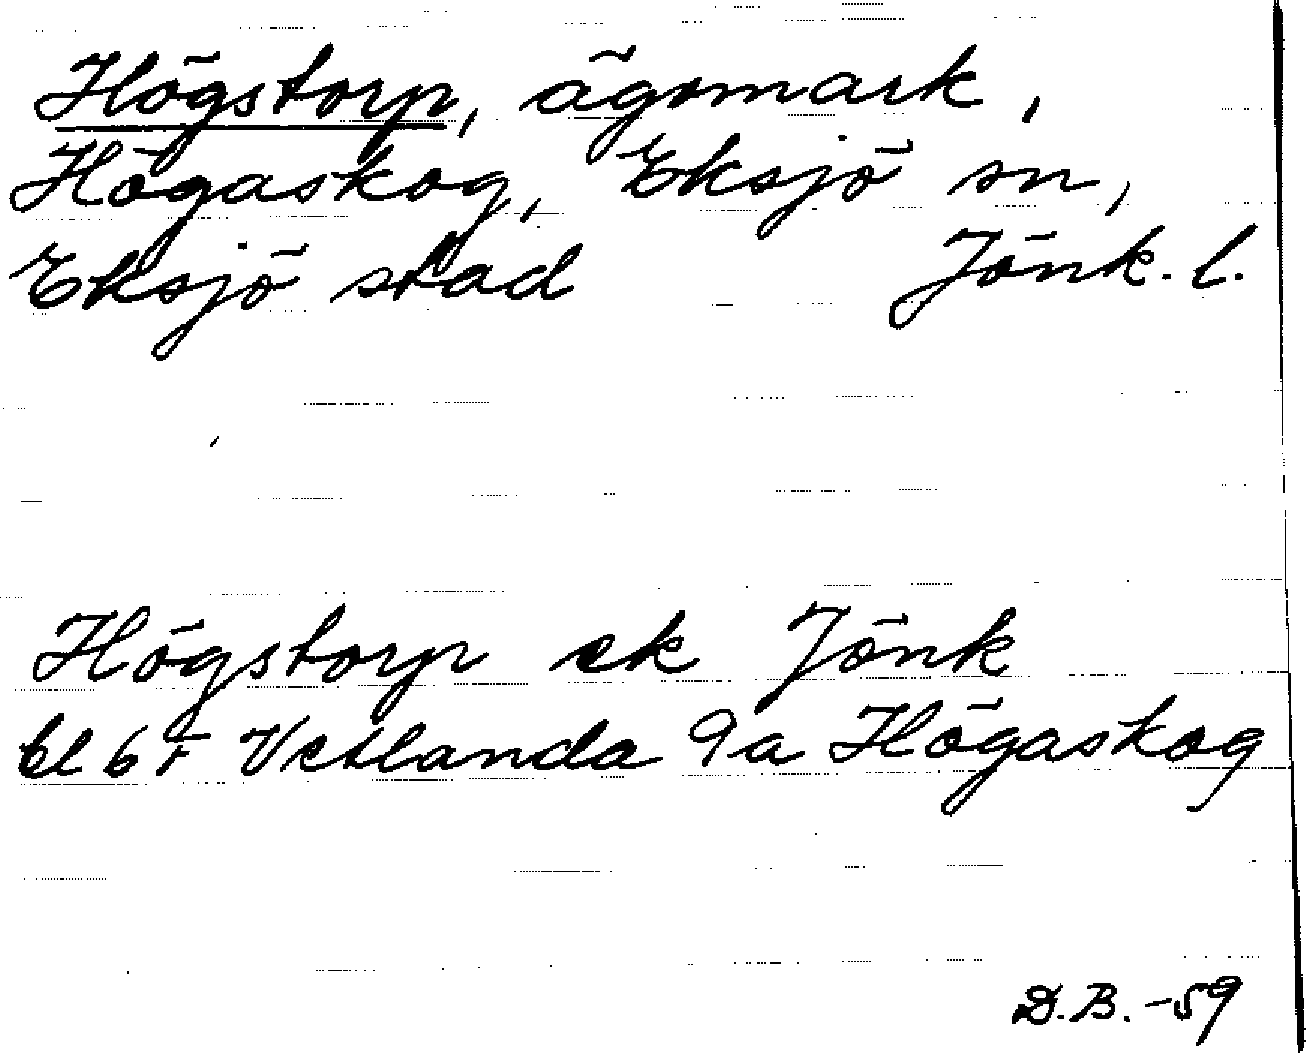 Högstorp, ägomark,
Högaskog, Eksjö sn,
Eksjö stad Jönk. l.
Högstorp ek Jönk
bl 6 F Vetlanda 9a Högaskog
D.B. -59